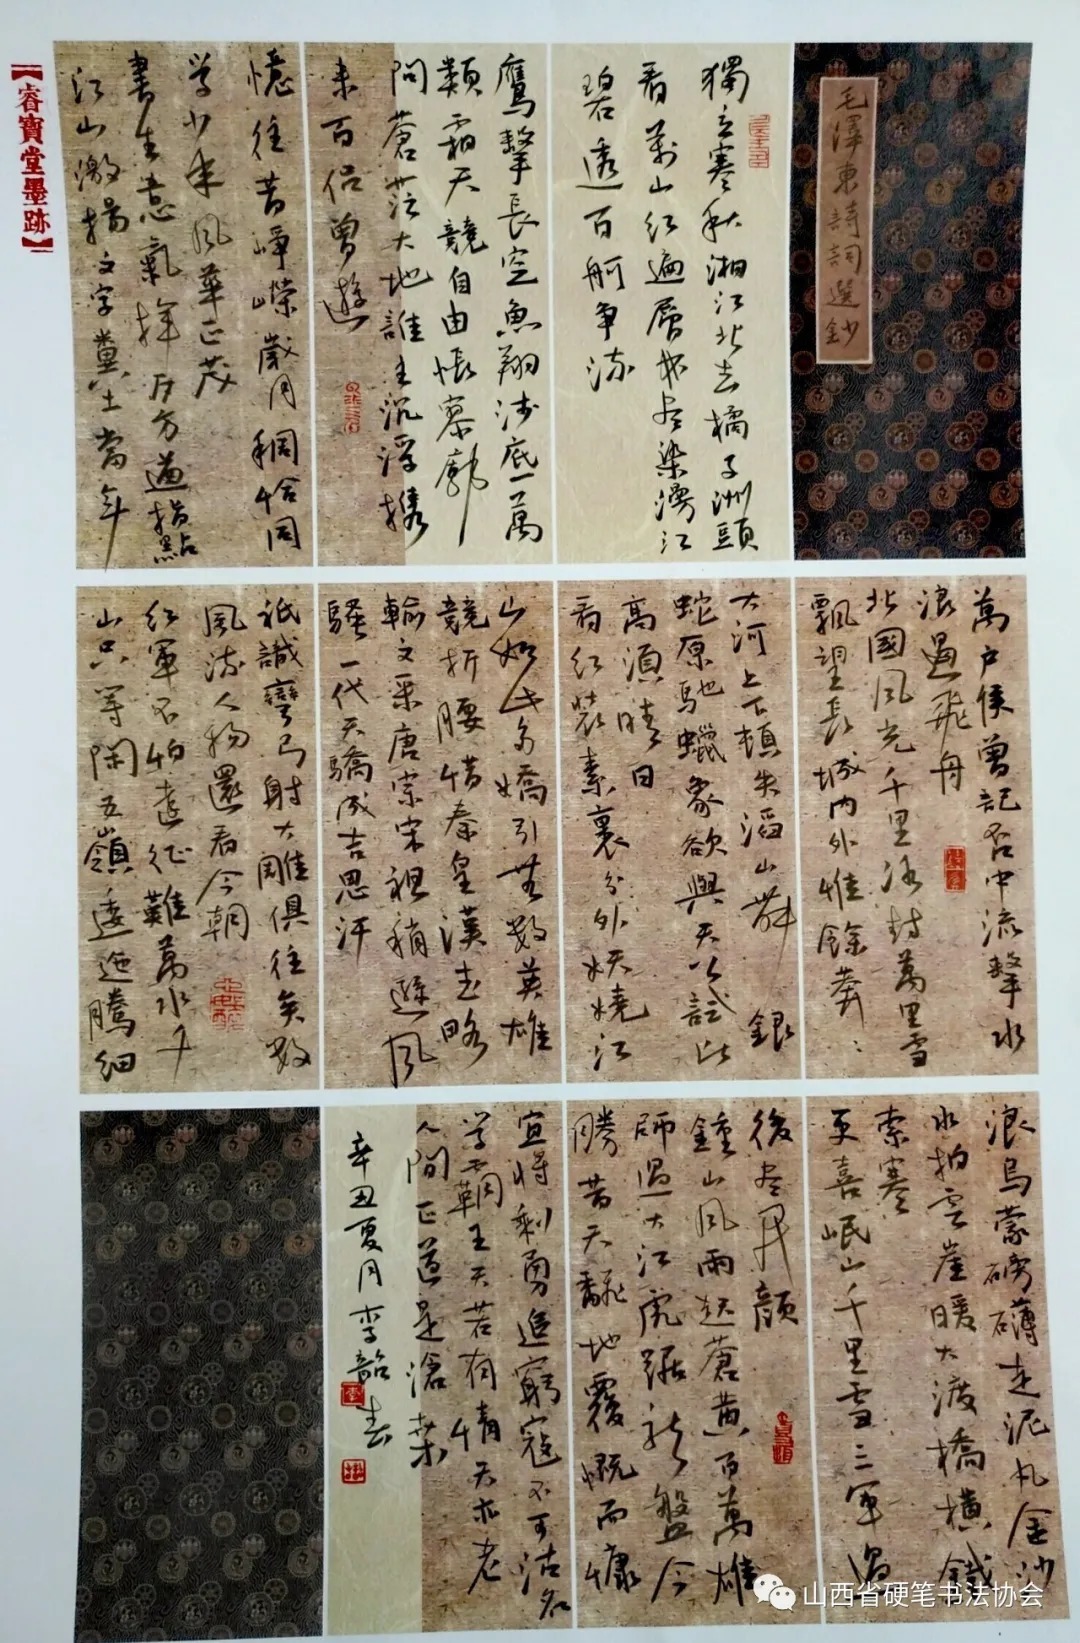 【睿寶堂墨跡】
毛澤東詩詞選鈔
獨立寒秋湘江北去橘子洲頭
看萬山紅遍層林盡染漫江
碧透百舸爭流
鷹擊長空魚翔淺底一萬
類霜天競自由悵寥廓
問蒼茫大地誰主沉浮攜
來百侶曾遊
憶往昔崢嶸歲月稠恰同
學少年風華正茂
書生意氣揮斥方遒指點
江山激揚文字糞土當年
萬戶侯曾記否中流擊水
浪遏飛舟
北國風光千里冰封萬里雪
飄望長城內外惟餘莽〻
大河上下頓失滔〻山舞銀
蛇原馳蠟象欲與天公試比
高須晴日
看紅裝素裹分外妖嬈江
山如此多嬌引無數英雄
競折腰惜秦皇漢武略
輸文采唐宗宋祖稍遜風
騷一代天驕成吉思汗
祇識彎弓射大雕俱往矣數
風流人物還看今朝
紅軍不怕遠征難萬水千
山只等閑五嶺逶迤騰細
浪烏蒙磅礴走泥丸金沙
水拍雲崖暖大渡橋橫鐵
索寒
更喜岷山千里雪三軍過
後盡開顏
鍾山風雨起蒼黃百萬雄
師過大江虎踞龍盤今
勝昔天翻地覆慨而慷
宜將剩勇追窮寇不可沽名
學霸王天若有情天亦老
人間正道是滄桑
辛丑夏月李韶春
山西省硬笔书法协会